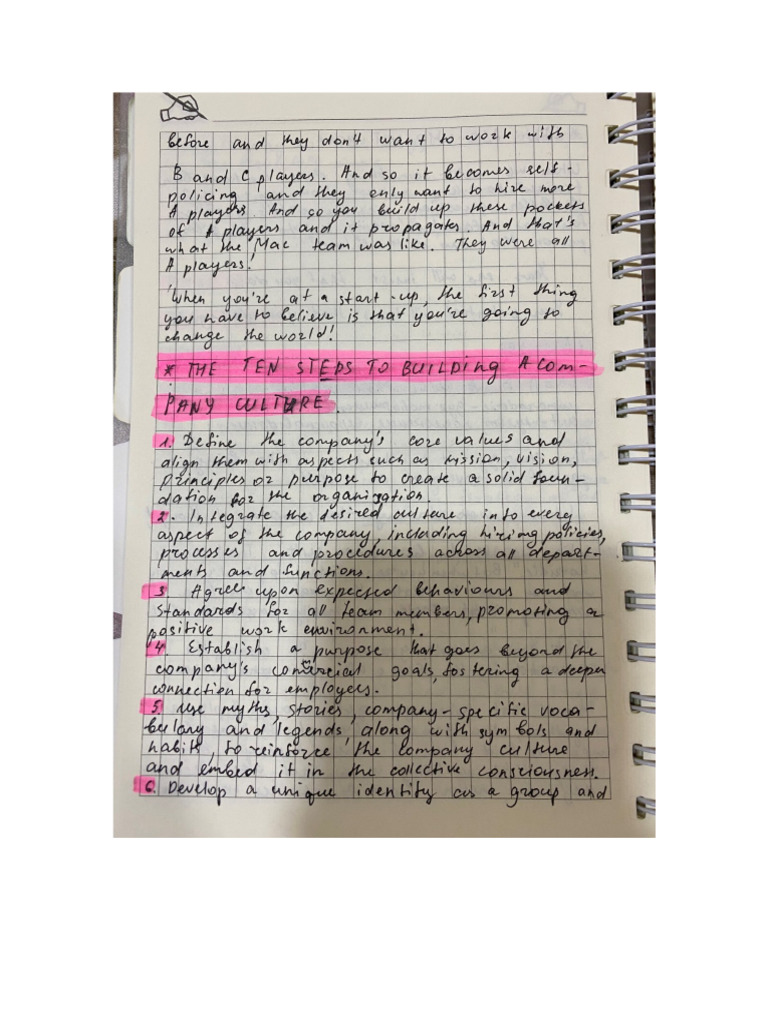 before and they don't want to work with
B and C players. And so it becomes self-
policing and they only want to hire more
A players. And so you build up these pockets
of A players and it propagates. And that's
what the Mac team was like. They were all
A players!
'When you're at a start-up, the first thing
you have to believe is that you're going to
change the world!
* THE TEN STEPS TO BUILDING A COM-
PANY CULTURE.
1. Define the company's core values and
align them with aspects such as mission, vision,
principles or purpose to create a solid foun-
dation for the organization.
2. Integrate the desired culture into every
aspect of the company, including hiring policies,
processes and procedures across all depart-
ments and functions.
3. Agree upon expected behaviours and
standards for all team members, promoting a
positive work environment.
4. Establish a purpose that goes beyond the
company's commercial goals, fostering a deeper
connection for employees.
5. Use myths, stories, company-specific voca-
bulary and legends, along with symbols and
habits, to reinforce the company culture
and embed it in the collective consciousness.
6. Develop a unique identity as a group and